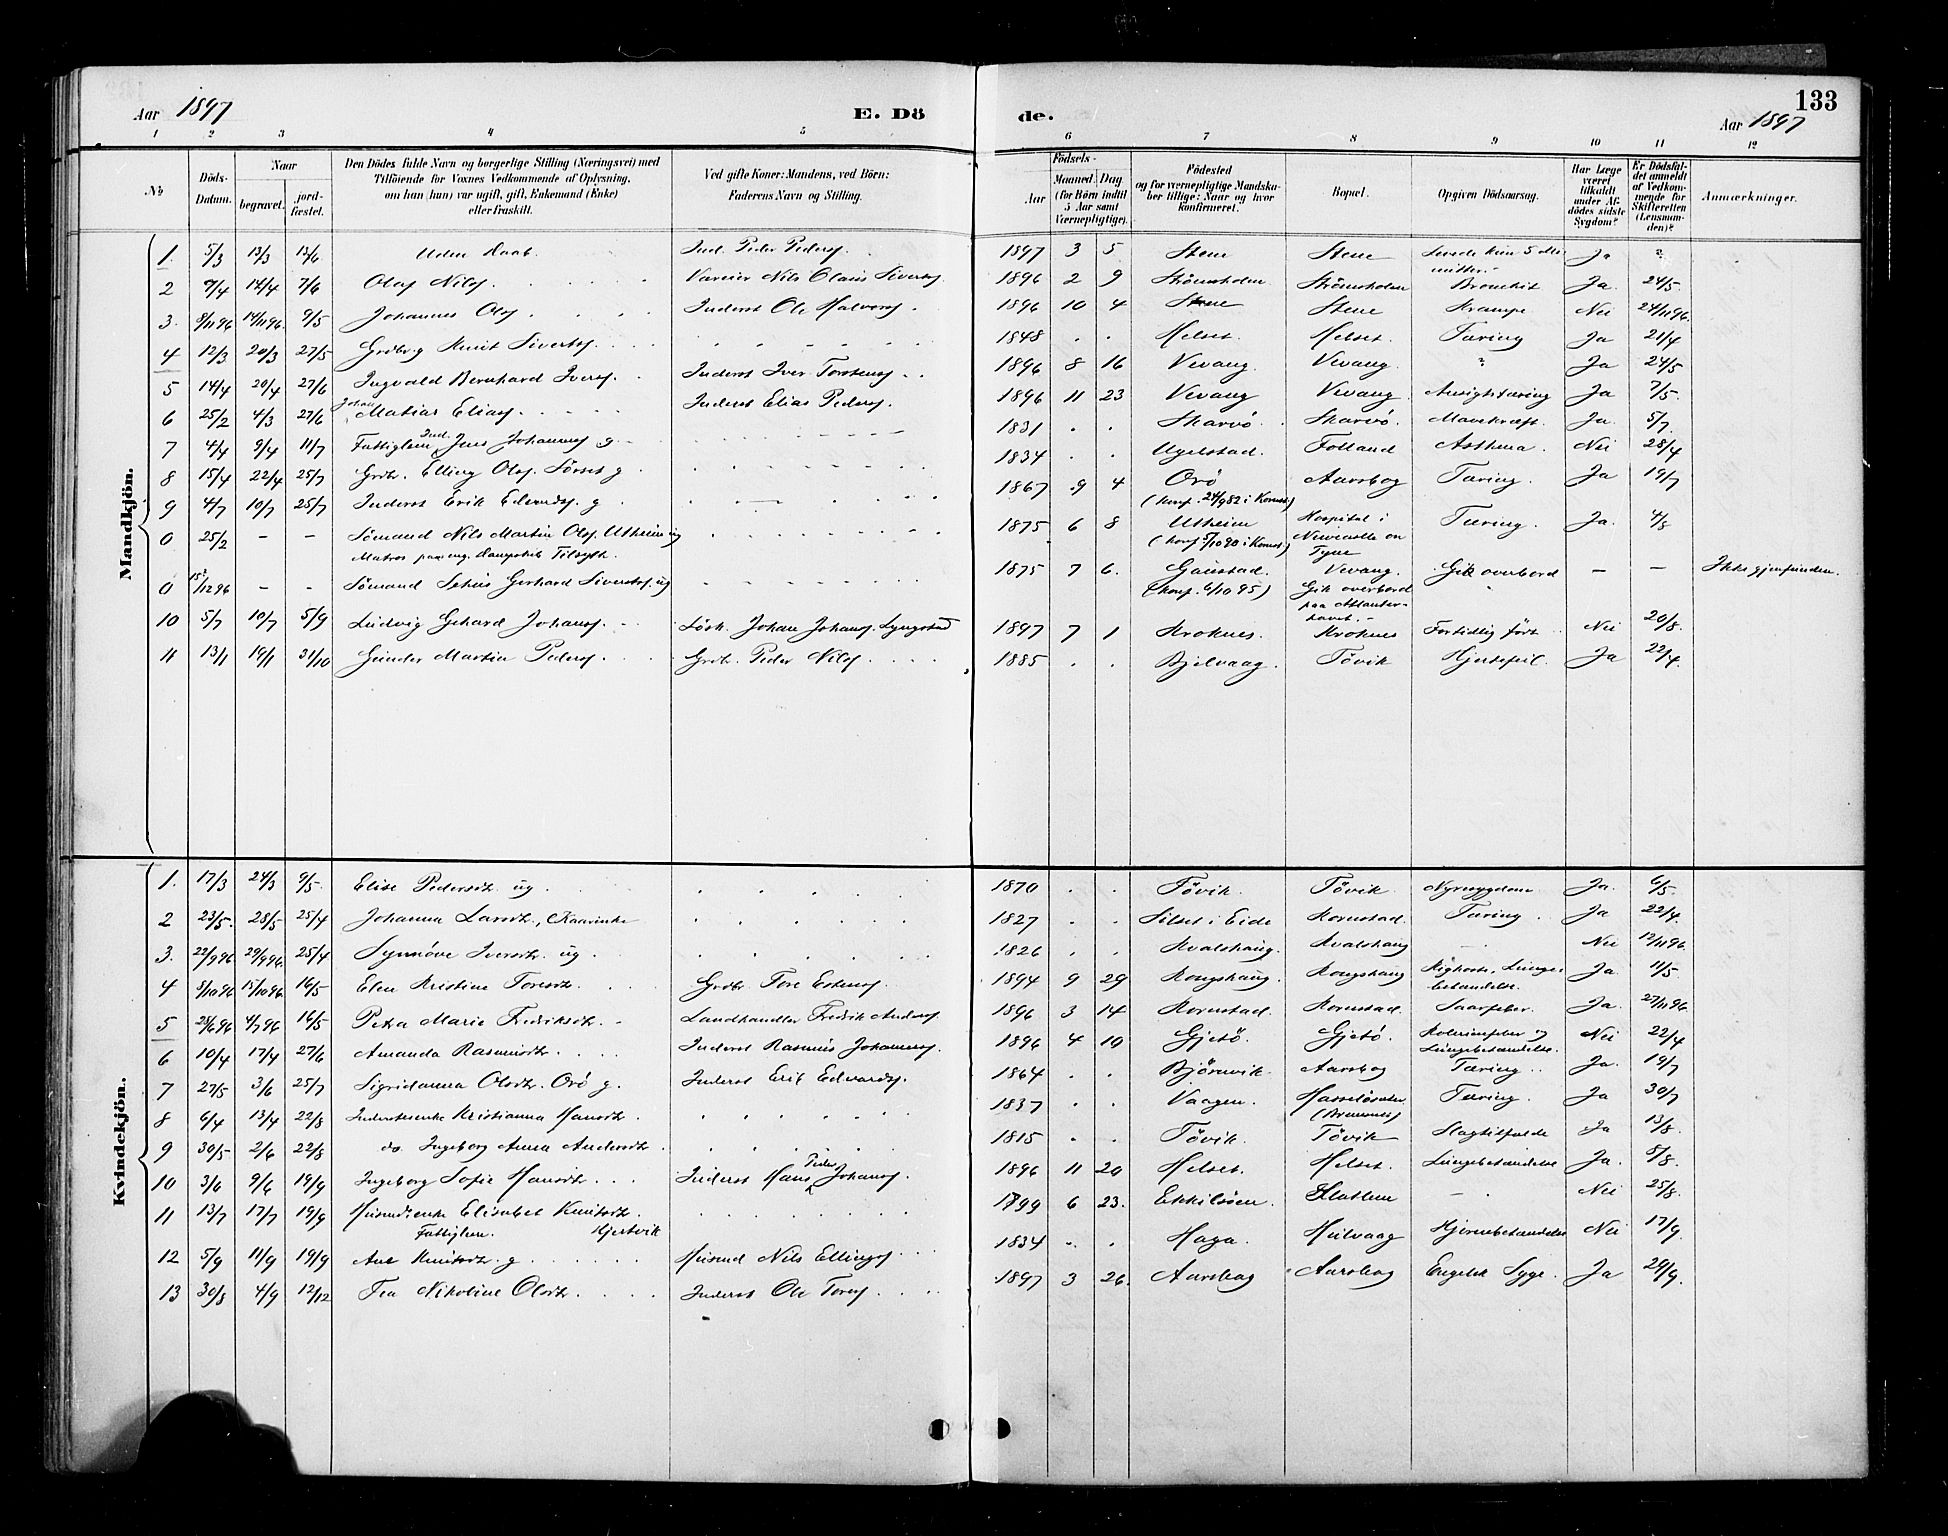 133
Aar 1897 E. Dö de. Aar 1897
1 2 3 4 5 6 7 8 9 10 11 12
No
Döds-Datum.
Naar
begravet.
jord-fæstet.
Den Dödes fulde Navn og borgerlige Stilling (Næringsvei) med
Tilföiende for Voxnes Vedkommende af Oplysning,
om han (hun) var ugift, gift, Enkemand (Enke)
eller fraskilt.
Ved gifte Koner: Mandens, ved Börn:
Faderens Navn og Stilling.
Födsels-
Aar
Maaned. Dag
(for Börn indtil
5 Aar samt
Værnepligtige).
Födested
og for værnepligtige Mandska-
ber tillige: Naar og hvor
konfirmeret.
Bopæl.
Opgiven Dödsaarsag.
Har Læge
været
tilkaldt
under Af-
dödes sidste
Sygdom?
Er Dödsfal-
det anmeldt
af Vedkom-
mende for
Skifteretten
(Lensman-
den)?
Anmærkninger.
Mandkjön.
1. 5/3 13/3 13/6 Uden Daab Ind. Peder Peders. 1897 3 5 Stene Stene Levede kun 5 Mi-
nutter. Ja ?
2 7/4 14/4 7/6 Olaf Nils. Nils Olaus Siverts. 1896 2 9 Strömsholm Strömsholm Bronchit Ja 24/5.
3. 8/11 96 14/11 96. 9/5 Johannes Ols. Inderst Ole Halvors. 1896 10 4 Stene Stene Krampe Nei 24/11 96.
4 12/3 20/3 27/5 Grdbr. g Knut Siverts. 1848 . . Helset. Helset. Tæring Ja 21/4
5 14/4 20/4 27/6 Ingvald Bernhard Ivers. Inderst Iver Torstens. 1896 8 16 Vevang. Vevang. ? Ja 24/5
6 25/2 4/3 27/6 Johan Matias Elias. Inderst Elias Peders. 1896 11 23 Vevang Vevang. Ja 7/5.
7 4/4 9/4 11/7 Fattiglem Ind. Jens Johanns. g 1831 . . Skarvö. Skarvö. Mavekræft. Ja. 5/7.
8 15/4 22/4 25/7 Grdbr. Elling Ols. Sörset g 1834 . . Ugelstad. Folland Asthma. Nei 28/4
9 4/7 10/7 25/7 Inderst Erik Edvards. g. 1867 9 4 Orö Aarsbog Tæring. Ja 19/7
(konf. 24/9 82 i Kornst.)
0 25/2 – – Sömand Nils Martin Ols. Utheim ug 1875 6 8 Utheim Hospital i Tæring. Ja. 4/8
Matros paa eng. Dampskib (konf. 5/10 90 i Kornst.) Newcastle on
Tyne
0 15?/12 96 – – Sömand Gerhard Siverts. ug 1875 7 6. Gaustad. Vevang. Gik overbord – – Ikke gjenfunden.
(konf. 6/10 95) Gik overbord
paa Atlanter-
havet.
10 5/7 10/7 5/9 Ludvig Gehard Johans. Lösk. Johan Johans. Lyngstad 1897 7 1 Kroknes. Kroknes For tidlig födt Nei 20/8.
11 13/1 19/1 31/10 Gunder Martin Peders. Grdbr. Peder Nils. 1885 . . Bjelvaag. Tövik Hjertefeil. Ja 22/4.
Kvindekjön.
1. 17/3 24/3 9/5. Elise Pedersdtr. ug 1870 . . Tövik. Tövik. Nyresygdom Ja. 6/5.
2 23/5. 28/5 25/4 Johanna Larsdtr., 1827 . . Silset i Eide Kornstad. Tæring. Ja 22/4.
3. 22/9 96 29/9 96. 25/4 Synnöve Iversdtr. ug. 1826 . . Kvalshaug. Kvalshaug – Nei 12/11 96.
4 8/10 96 15/10 96. 16/5 Elen Kristine Toresdtr. Grdbr Tore Estens. 1894 9 29 Kongshaug. Kongshaug Kighoste, Lunge-
betændelse. Ja. 11/5
5 28/6 96 4/7 96 16/5 Petra Marie Fredriksdtr. Landhandler Fredrik Anders. 1896 3 14 Kornstad. Kornstad. Saarfeber. Ja. 27/11 96
6 10/4 17/4 27/6 Amanda Rasmusdtr. Inderst Rasmus Johanns. 1896 4 10 Gjetö. Gjetö. og
Lungebetændelse. Nei 22/4
7 27/5 3/6 25/7 Sigridanna Olsdtr. Orö g. Inderst Erik Edvards. 1864 . . Björnevik. Aarsbog Tæring. Ja. 19/7
8 6/4 13/4 22/8 Inderstenke Kristianna Hansdtr. 1837 . . Vaagen.
(Bremsnes) Tæring. Ja 30/7
9 30/5 2/6 22/8 do. Ingeborg Anna Andersdtr. 1815 . . Tövik. Tövik Slagtilfælde Ja 13/8.
10 3/6 9/6 19/9 Ingeborg Sofie Hansdtr. Inderst Hans Peder Johans. 1896 11 20 Helset. Helset. Lungebetændelse Ja. 5/8.
11 13/7 17/7 19/9 Husmdsenke Elisabet Knutsdtr. 1799 6 23. Ekkilsöen. Slatlem – Nei 25/8.
Fattiglem. Hjertvik
12 5/9 11/9 19/9 Ane Knutsdtr. g Husmd Nils Ellings. 1834 . . Haga. Hulvaag Hjernebetændelse Nei 17/9.
13 30/8 4/9 12/12 Tea Nikoline Olsdtr. Inderst Ole Tores. 1897 3 26. Aarsbog Aarsbog Engelsk Syge. Ja 29/9.